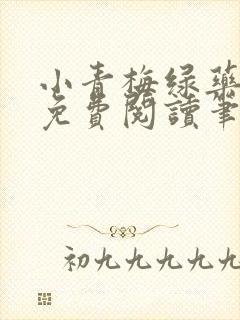 小青梅绿药
免費閱讀筆
初九九九九九